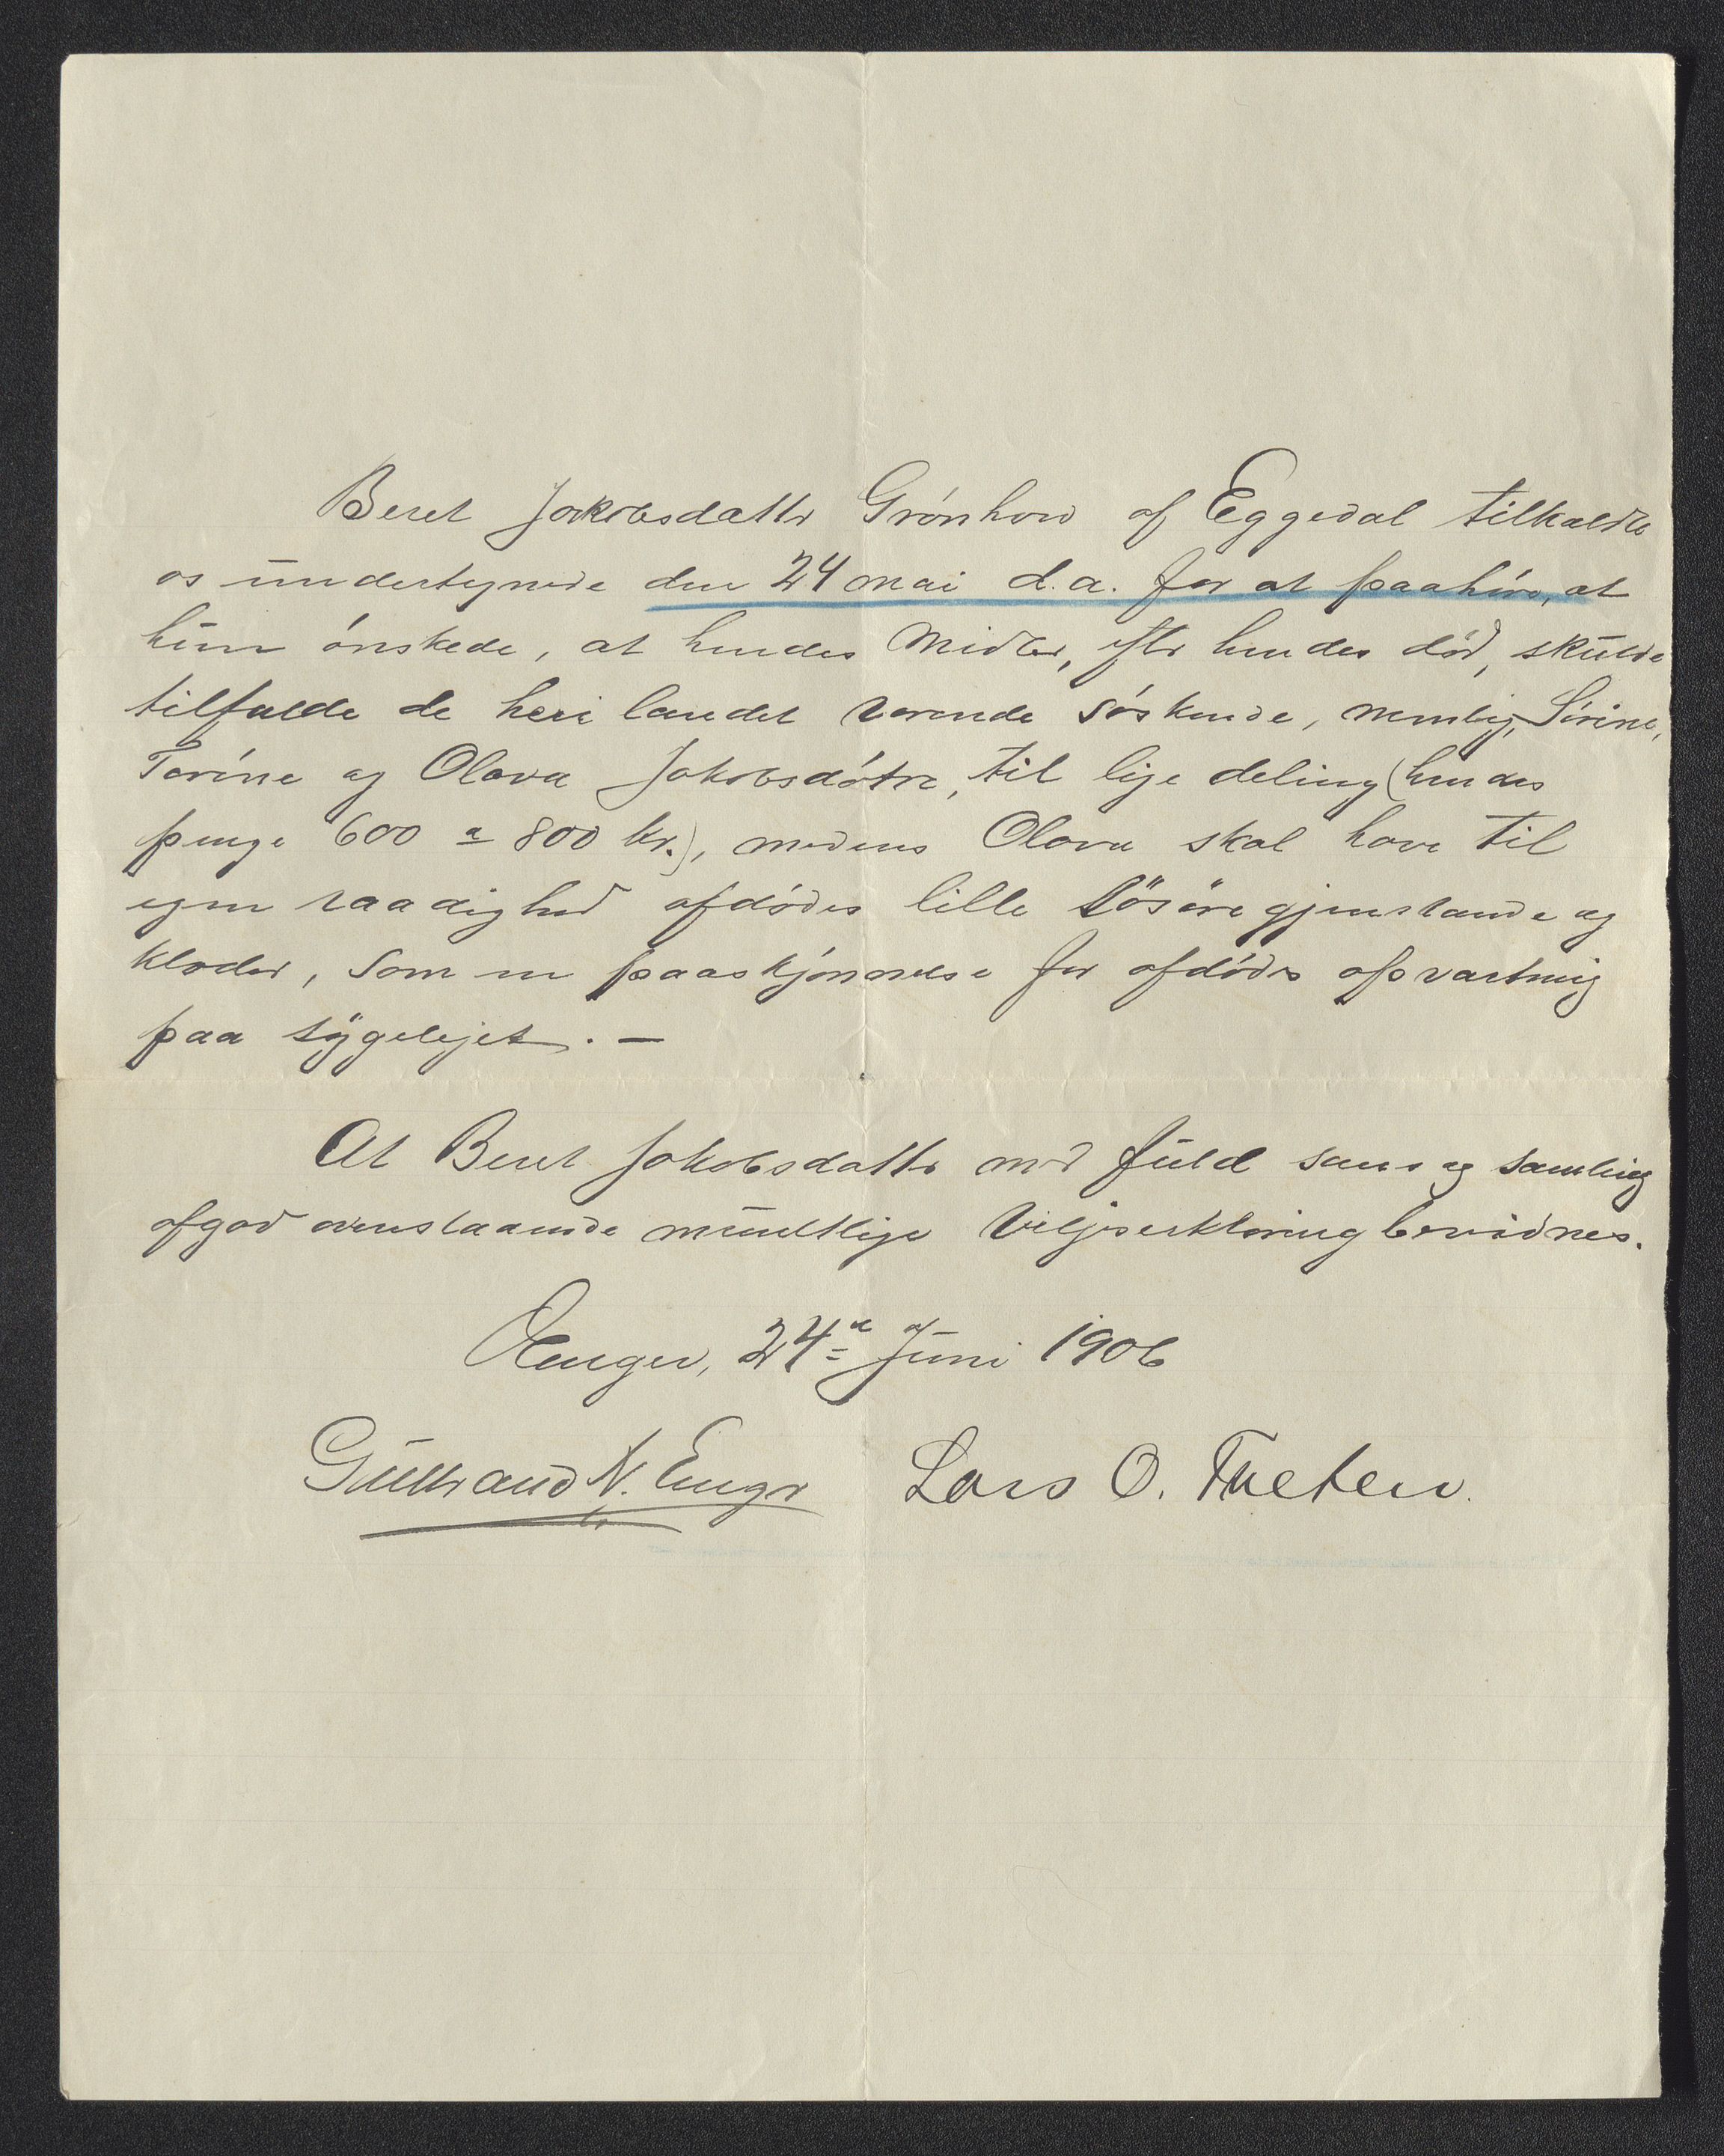 Beret Jakobsdatter Grønhow af Eggedal tilkaldte
os undertegnede den 24 mai d.a. for at paahøre, at
hun ønskede, at hendes Midler, efter hendes død, skulde
tilfalde de heri landet værende søskende, nemlig, Sørine,
Torine og Olava Jakobsdøtre, til lige deling (hendes
penge 600 a 800 kr.), medens Olava skal have til
egen raadighed afdødes lille løsøregjenstande og
klæder, som en paaskjønnelse for afdødes opvartning
paa sygelejet. —
At Beret Jakobsdatter med fuld sans og samling
afgav ovenstaaende mundtlige Viljeserklæring bevidnes.
Enger, 24de Juni 1906
Gulbrand N. Enger Lars O. Træten.